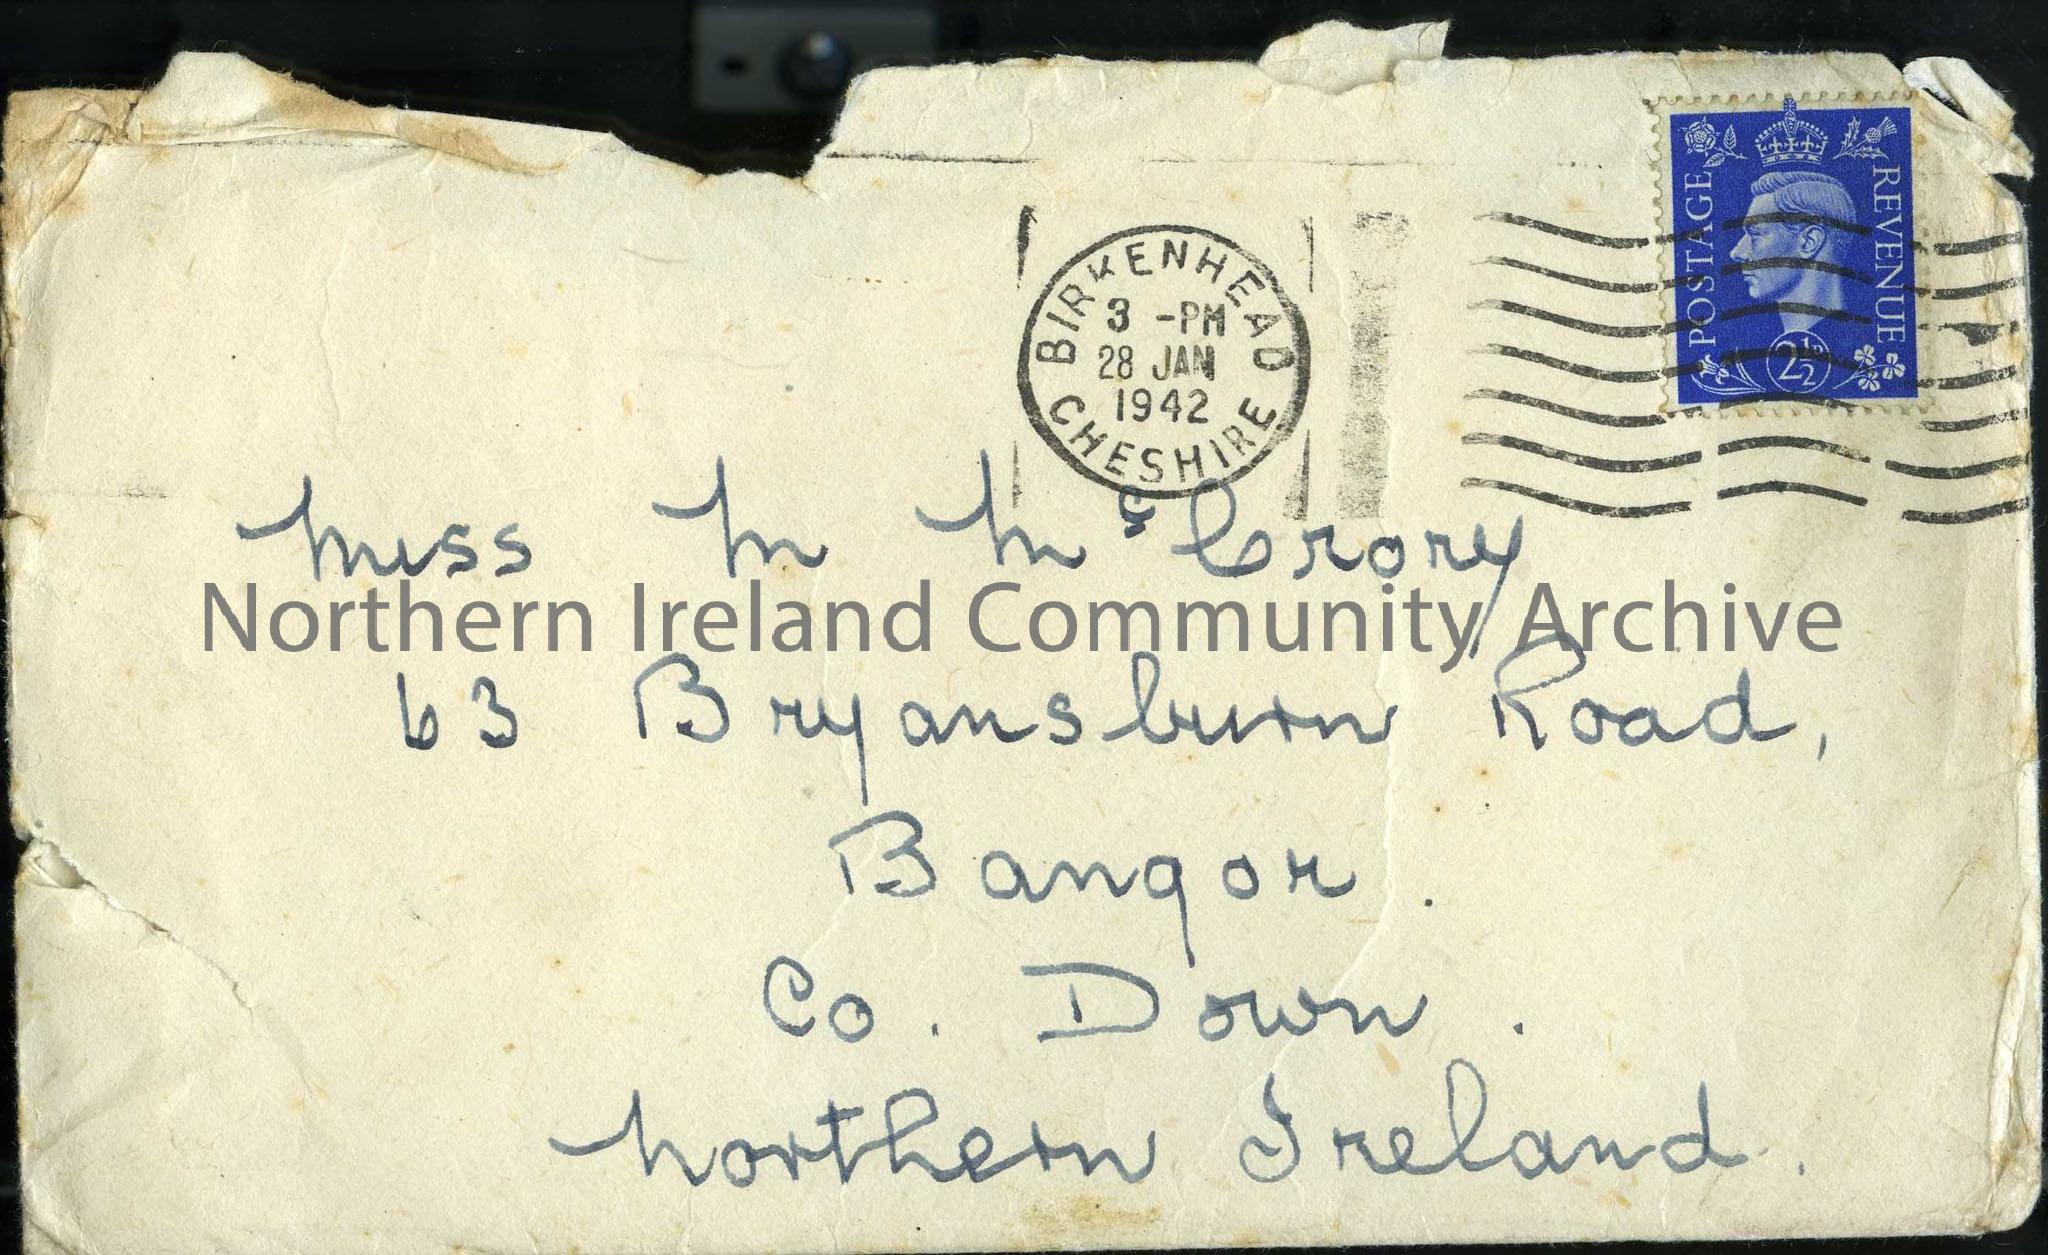 POSTAGE REVENUE
2½
BIRKENHEAD
3 -PM
28 JAN
1942
CHESHIRE
Miss M McCrory
Northern Ireland Community Archive
63 Bryansburn Road,
Bangor.
Co. Down.
Northern Ireland.